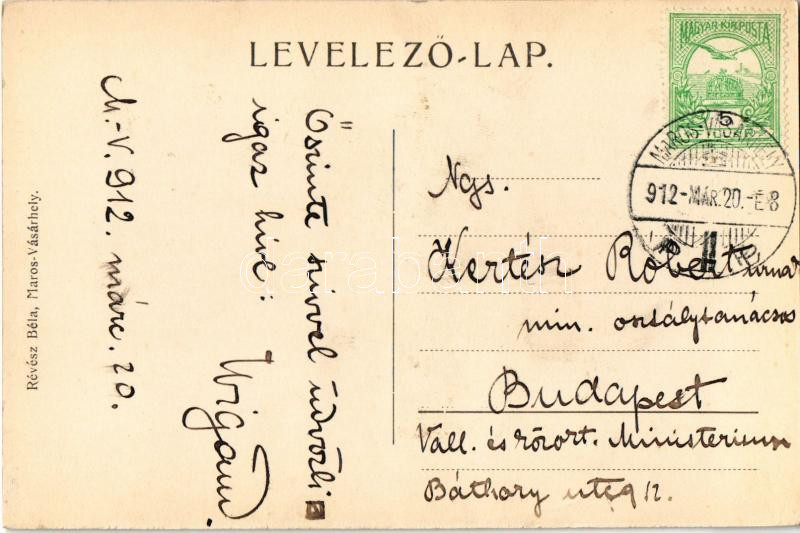 LEVELEZŐ-LAP.
MAGYAR KIR. POSTA
5
MAROS-VÁSÁRHELY
912-MÁR.20.-E8
M.-V. 912. márc. 20.
Őszinte szívvel üdvözli
igaz híve:
Wigand.
Ngs.
Kertész Róbert úrnak
min. osztálytanácsos
Budapest
Vall. és közokt. Ministerium
Báthory utca 12.
Révész Béla, Maros-Vásárhely.
darabanth